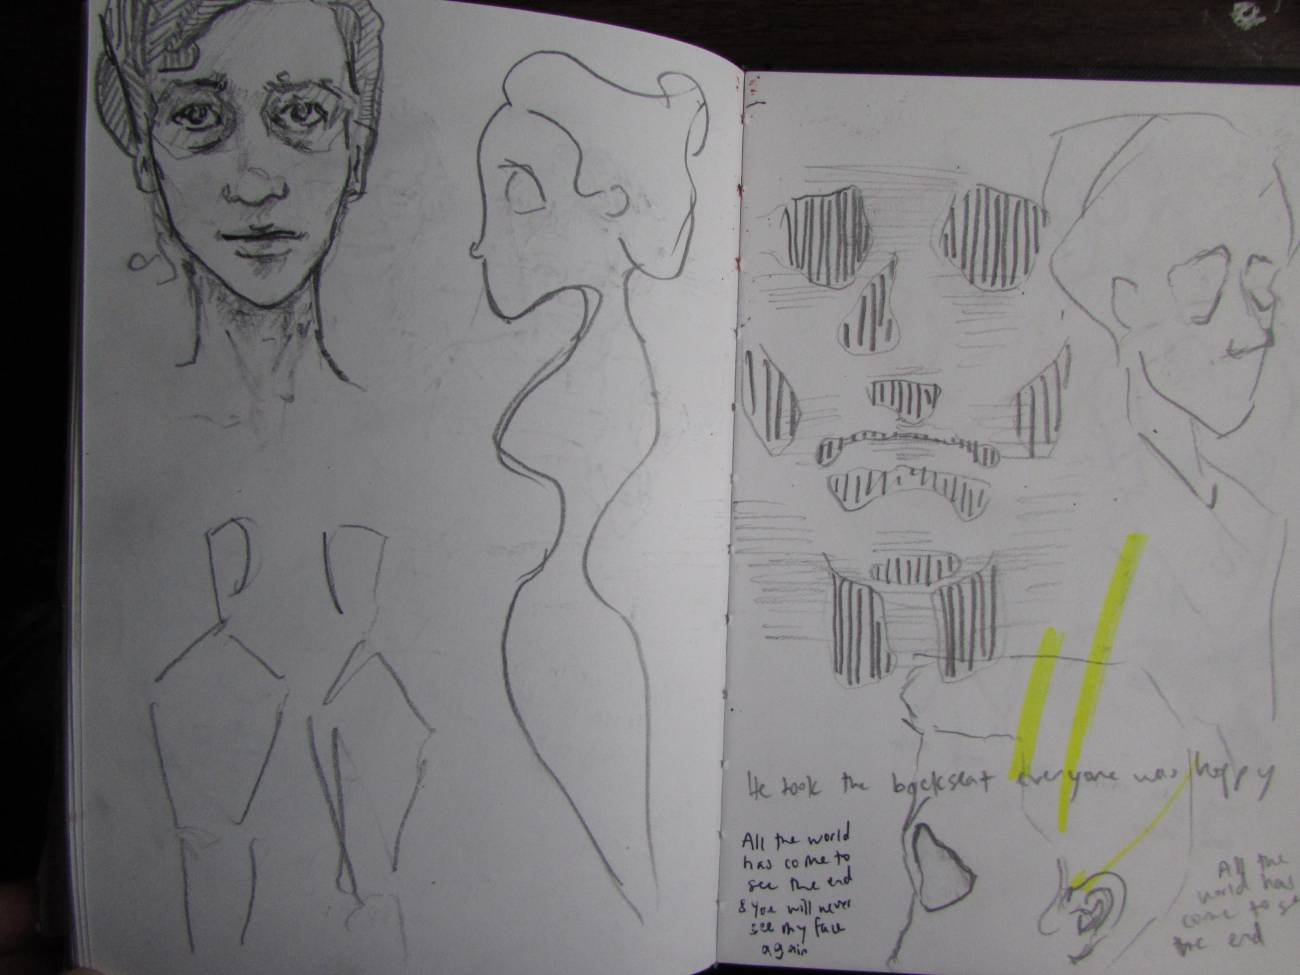 He took the backseat everyone was happy
All the world
has come to
see the end
& you will never
see my face
again
All the
world has
come to se
the end